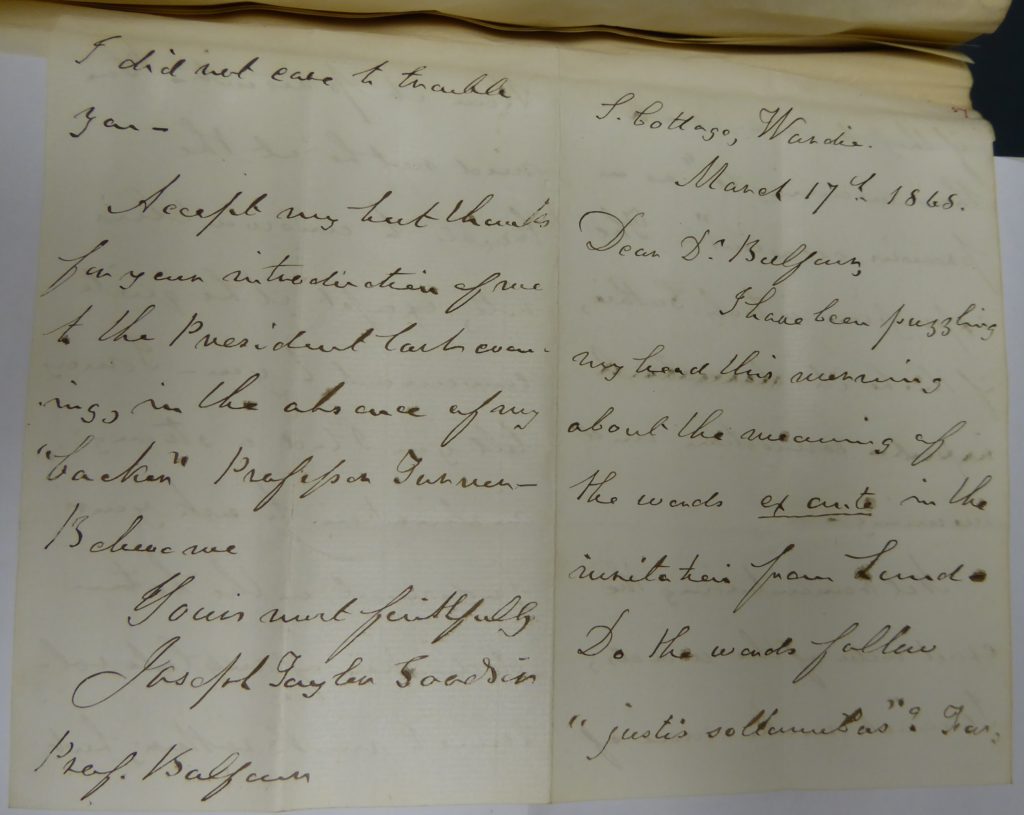 S. Cottage, Wardie.
March 17th. 1868.
Dear Dr. Balfour,
I have been puzzling
my head this morning
about the meaning of
the words ex ante in the
invitation from Lund.
Do the words follow
"justis
I did not care to trouble
you—
Accept my best thanks
for your introduction of me
to the President last even-
ing, in the absence of my
"backer" Professor Turner—
Believe me
Yours most faithfully
Joseph Taylor Goodsir
Prof. Balfour